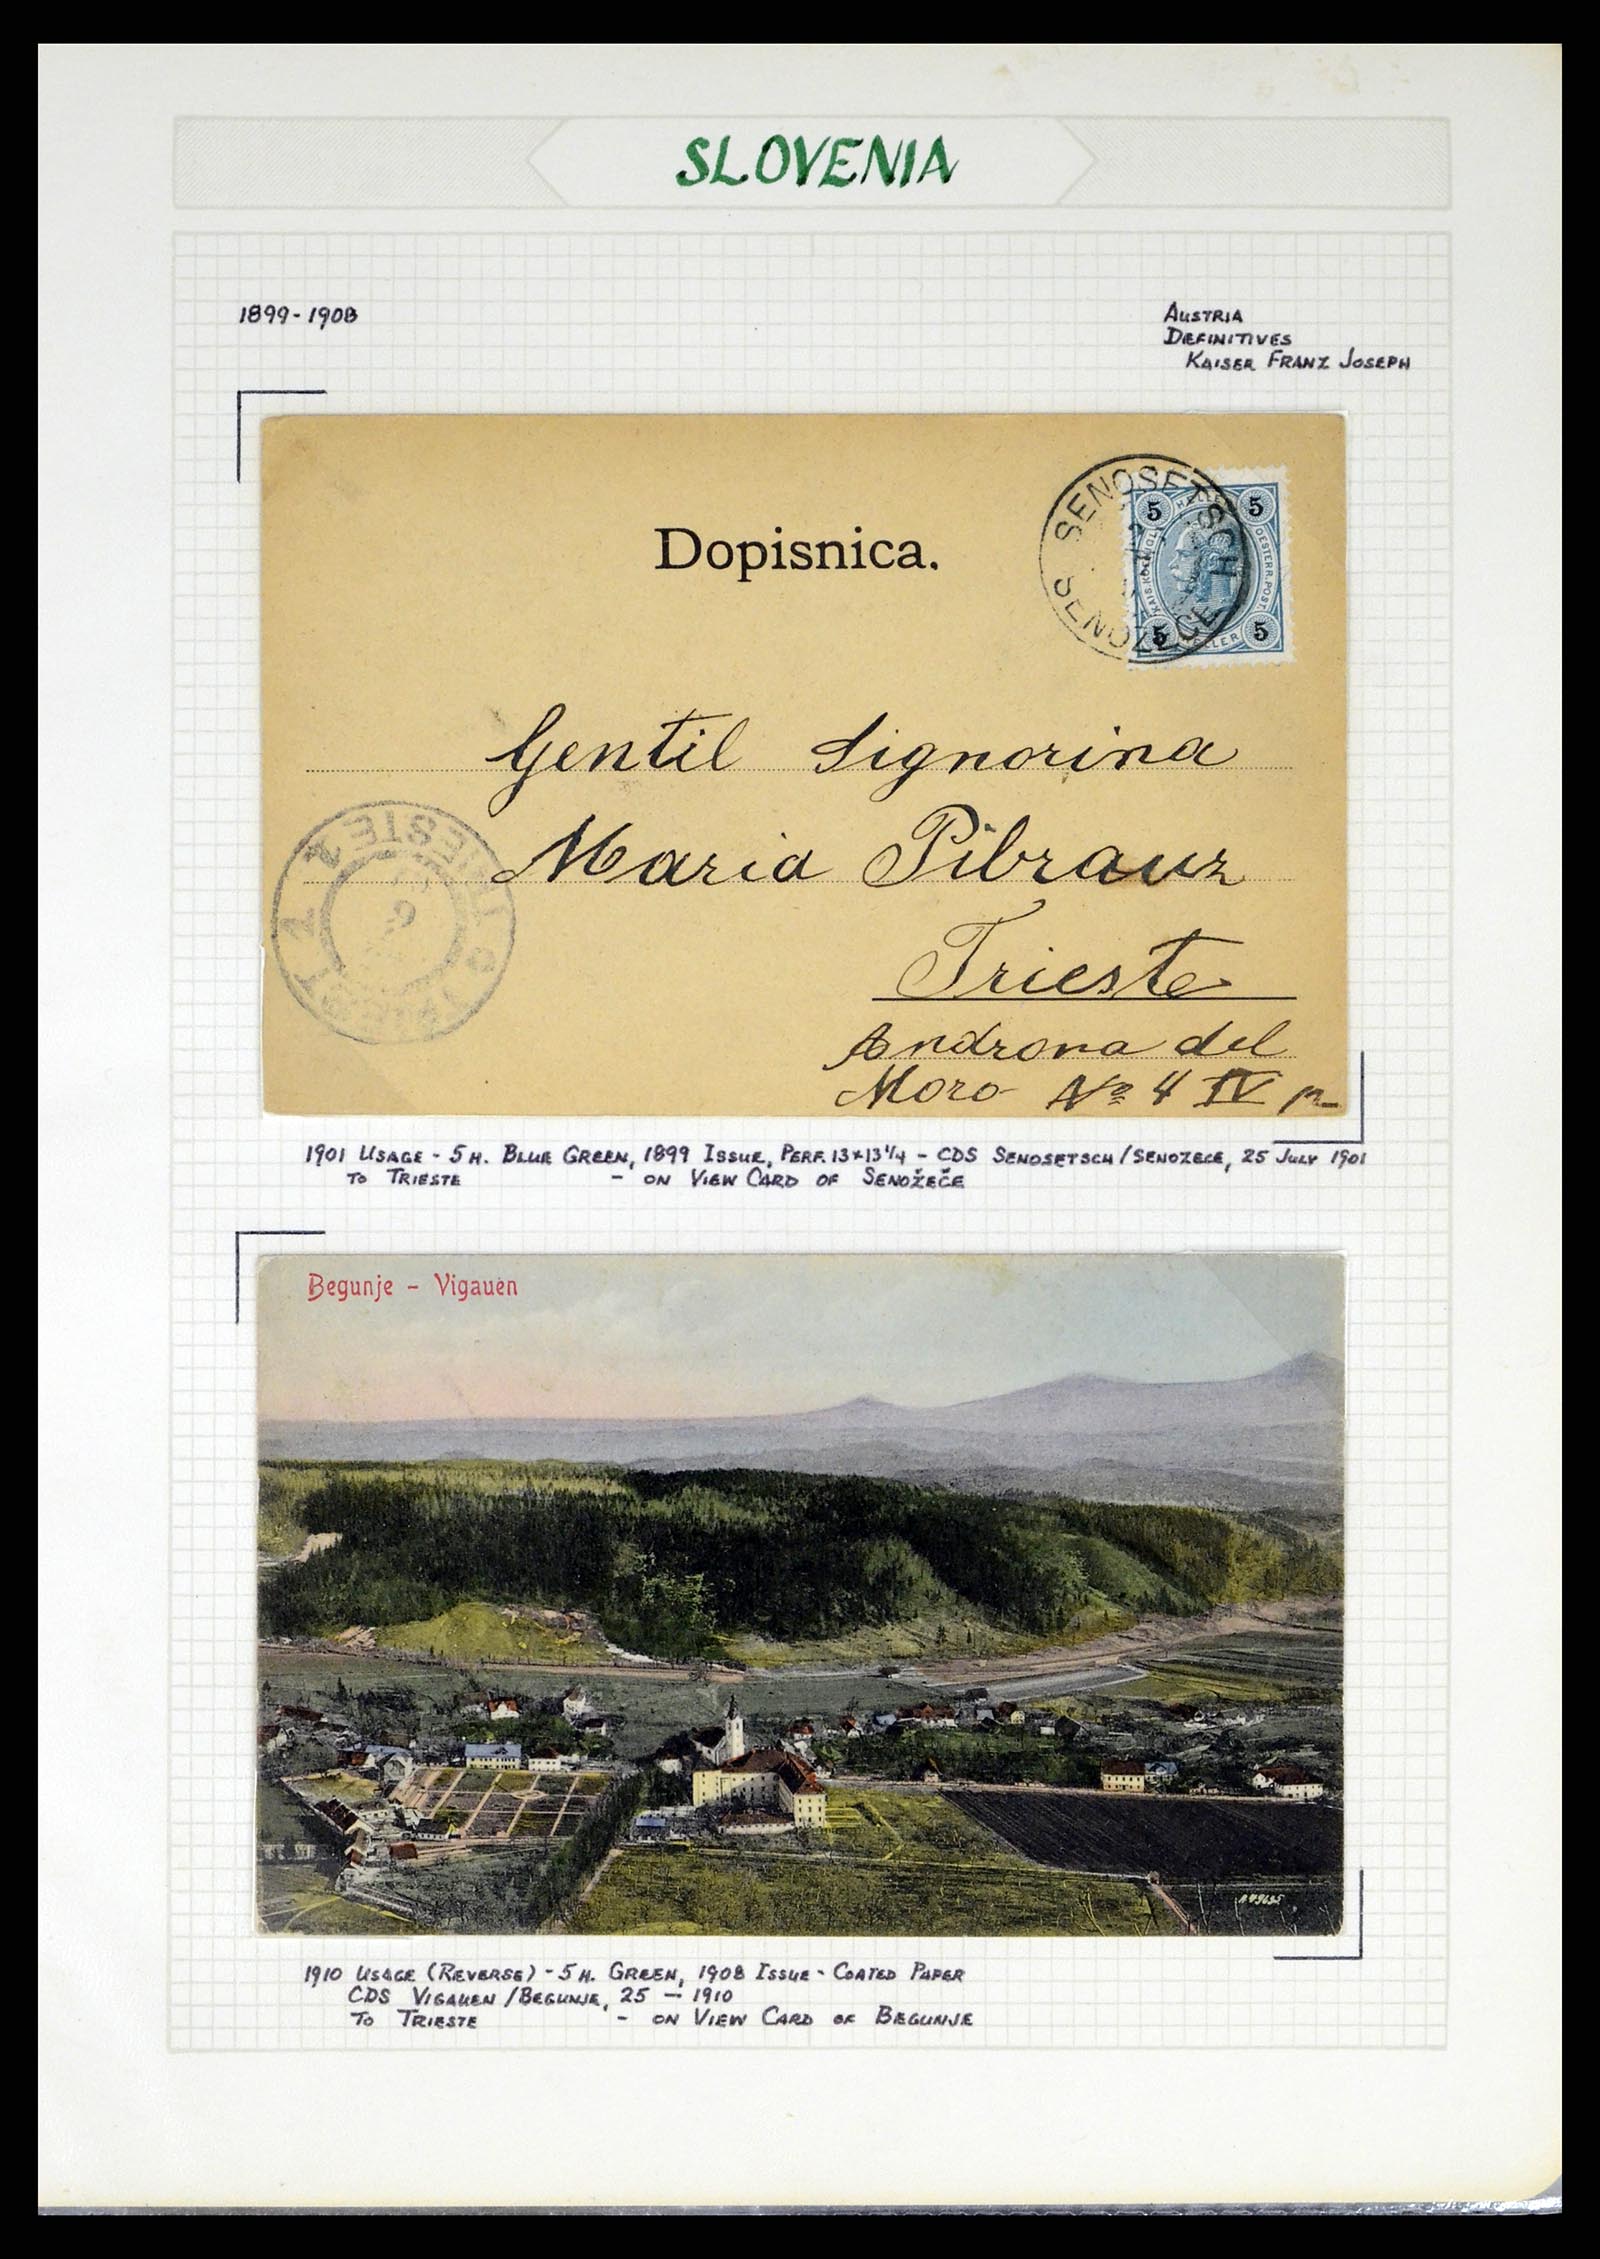 SLOVENIA
1899-1908
AUSTRIA
DEFINITIVES
KAISER FRANZ JOSEPH
Dopisnica.
SENOSETSCH
SENOŽEČE
5 HELLER 5
KAIS. KOENIGL. OESTERR. POST.
5 HELLER 5
Gentil Signorina
Maria Pibrauz
Trieste
Androna del
Moro No 4 IV p
TRIEST 1
TRIESTE 1
1901 USAGE - 5 H. BLUE GREEN, 1899 ISSUE, PERF. 13x13¼ - CDS SENOSETSCH/SENOZECE, 25 JULY 1901
TO TRIESTE - ON VIEW CARD OF SENOŽEČE
Begunje - Vigauen
1910 USAGE (REVERSE) - 5 H. GREEN, 1908 ISSUE - COATED PAPER
CDS VIGAUEN/BEGUNJE, 25 — 1910
TO TRIESTE - ON VIEW CARD OF BEGUNJE